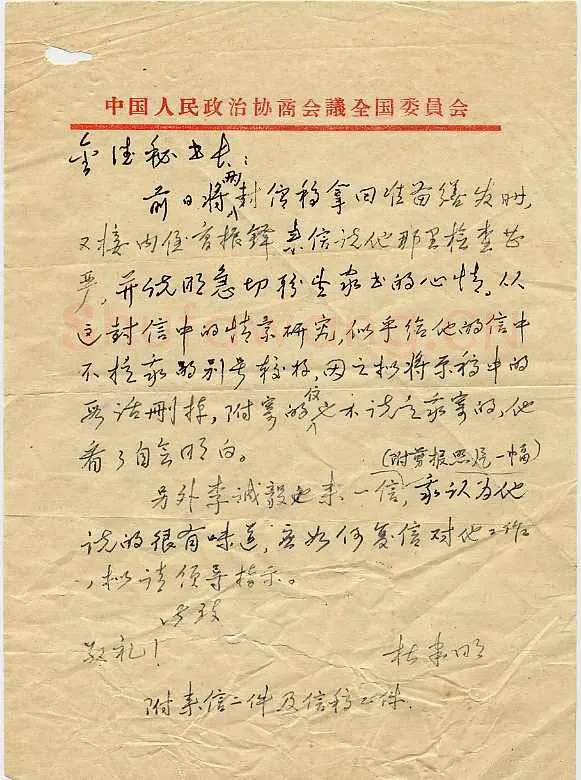 中国人民政治协商会議全国委員会
金佳秘书长：
前日将两封信稿拿回准备缮发时，
又接内侄曹振铎来信说他那里检查甚
严，并说明急切盼望家书的心情。从
这封信中的情景研究，似乎给他的信中
不提我的别号较好，因之拟将原稿中的
那话删掉，附寄的信也不说是我寄的，他
看了自会明白。
另外李诚毅也来一信，(附剪报照片一幅)我认为他
说的很有味道，应如何复信对他工作
，拟请领导指示。
此致
敬礼！
杜聿明
附来信二件及信稿二件.